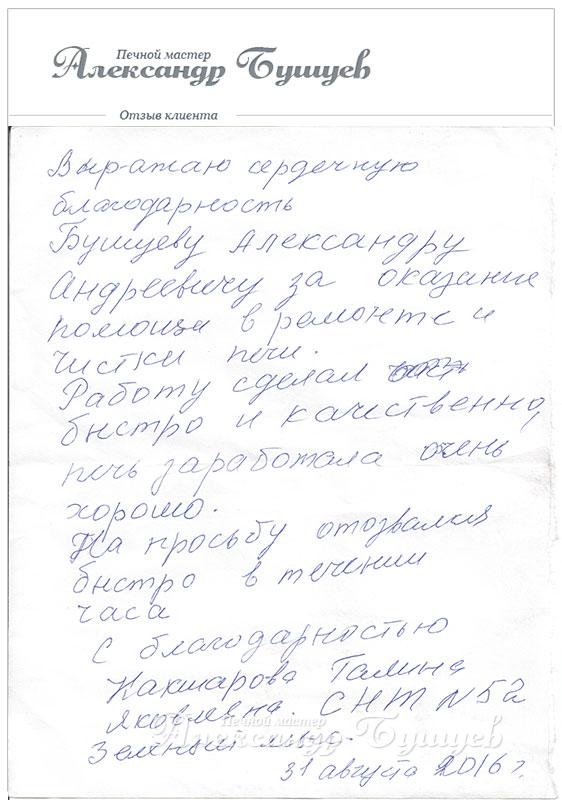 Печной мастер
Александр Бушуев
Отзыв клиента
Выражаю сердечную
благодарность
Бушуеву Александру
Андреевичу за оказание
помощи в ремонте и
чистки печи.
Работу сделал
быстро и качественно,
печь заработала очень
хорошо.
На просьбу отозвался
быстро в течении
часа
С благодарностью
Галина
Яковлевна. СНТ N 52
Печной мастер
Александр Бушуев
31 августа 2016 г.